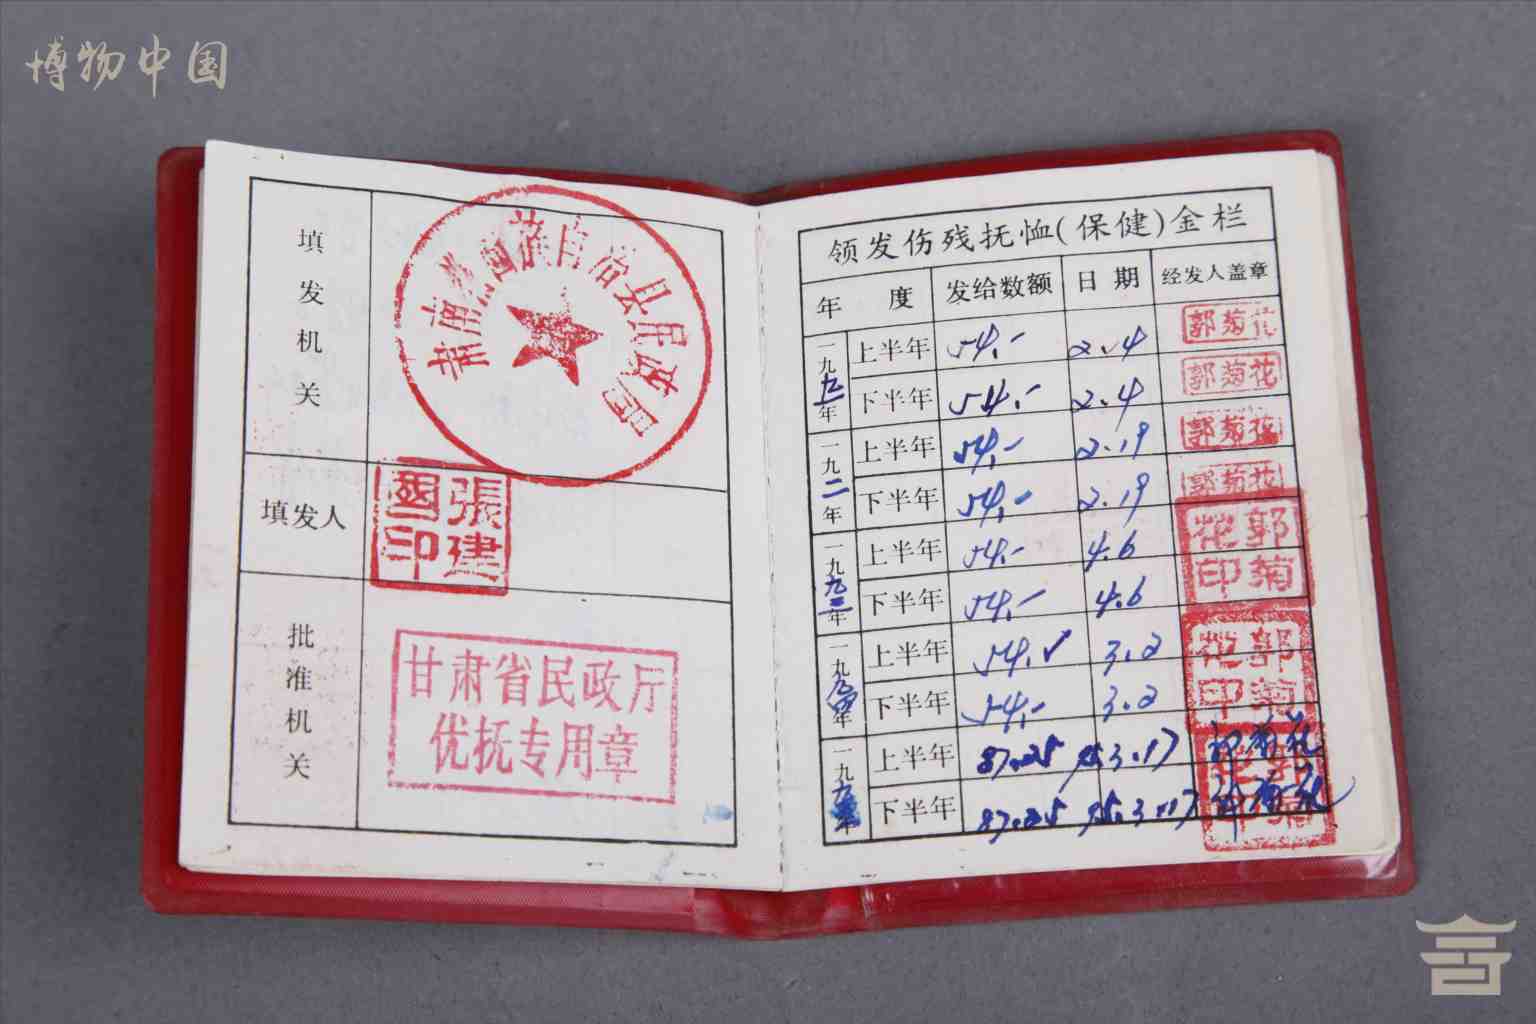 博物中国
填发机关
肃南裕固族自治县民政局
填发人
張建國印
批准机关
甘肃省民政厅
优抚专用章
领发伤残抚恤(保健)金栏
年 度 发给数额 日 期 经发人盖章
一九九一年 上半年 54.- 2.4 郭菊花
下半年 54.- 2.4 郭菊花
一九九二年 上半年 54.- 2.19 郭菊花
下半年 54.- 2.19 郭菊花
一九九三年 上半年 54.- 4.6 郭菊花印
下半年 54.- 4.6
一九九四年 上半年 54.- 3.2 郭菊花印
下半年 54.- 3.2
一九九 年 上半年 87.25 95.3.17 郭菊花
下半年 87.25 95.3.17 郭菊花